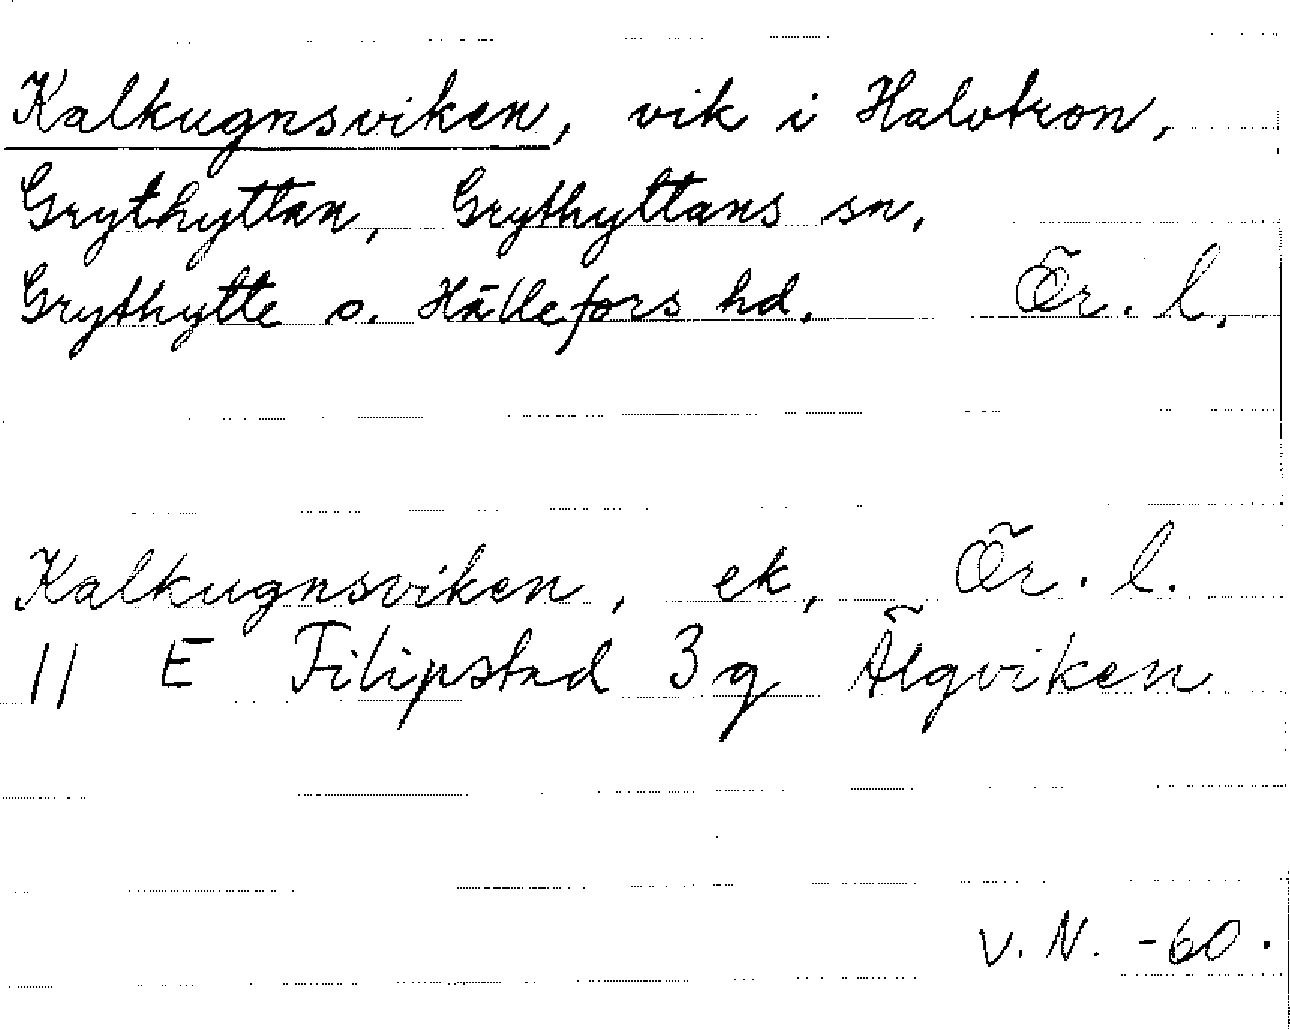 Kalkugnsviken, vik i Halvtron,
Grythyttan, Grythyttans sn,
Grythytte o. Hällefors hd. Ör. l.
Kalkugnsviken, ek, Ör. l.
11 E Filipstad 3 g Älgviken
V. N. -60.